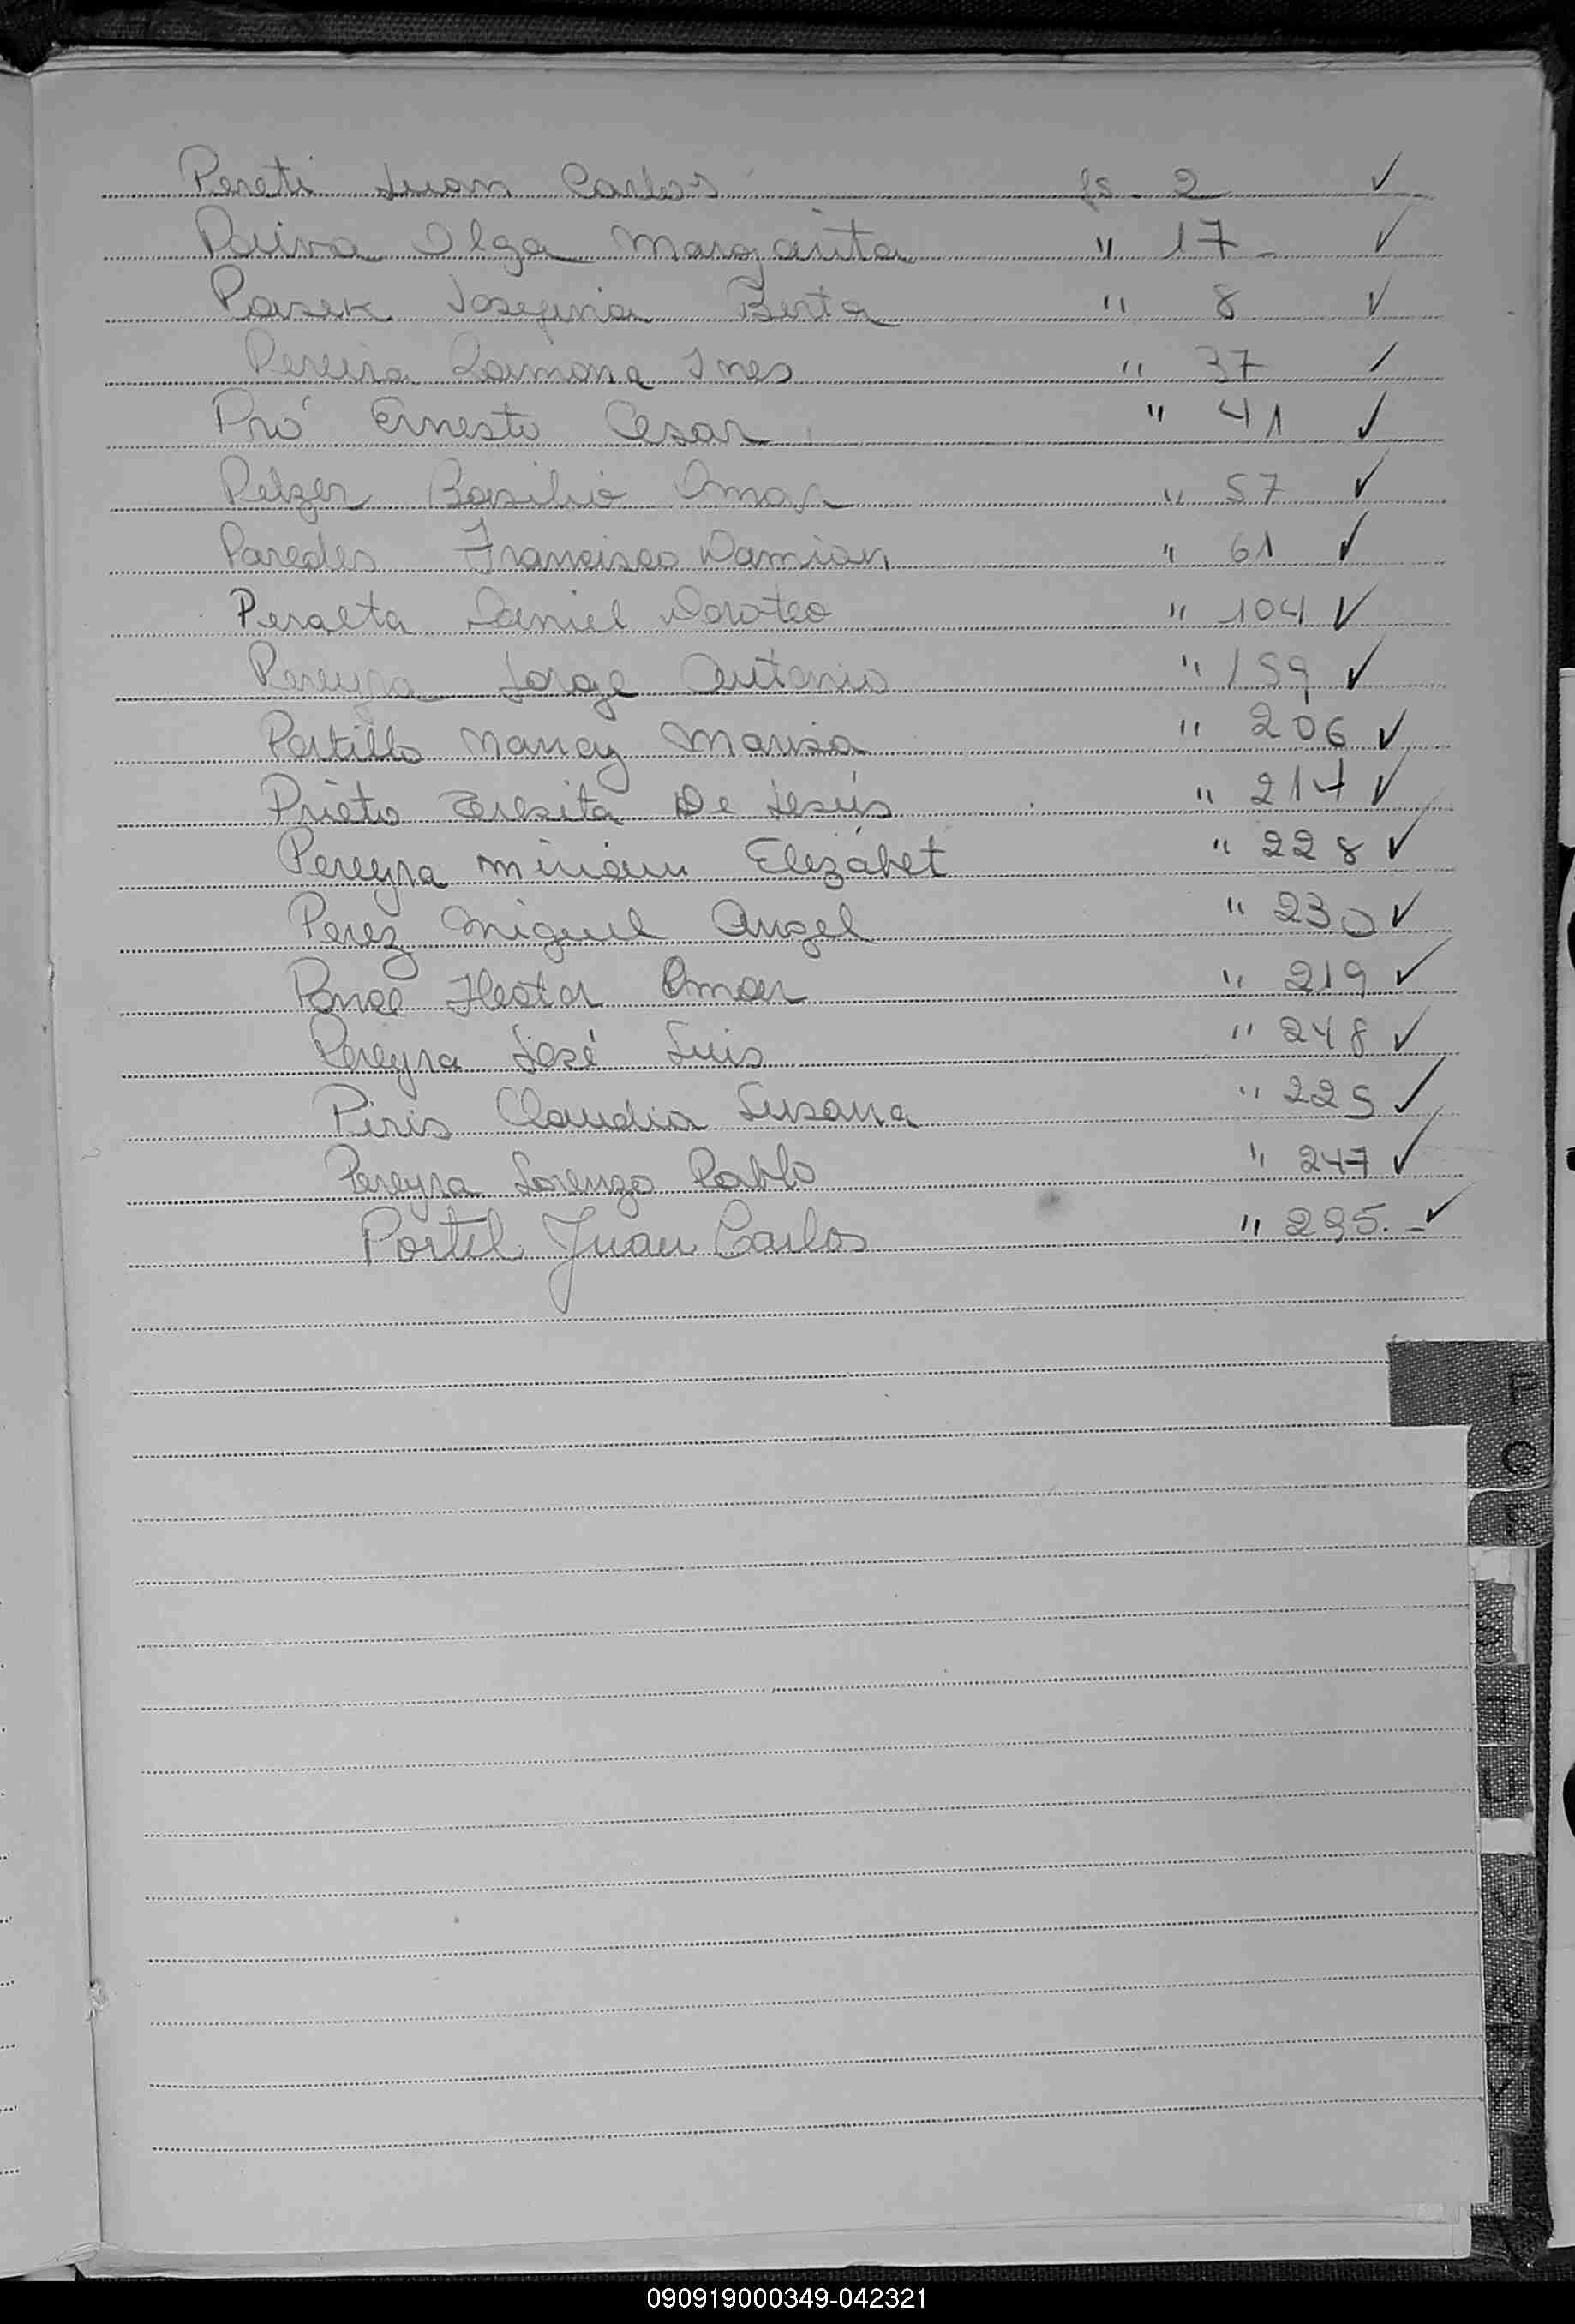 Pereti Juan Carlos fs. 2 ✓
Paiva Olga Margarita " 17 - ✓
Pasek Josefina Berta " 8 ✓
Pereira Ramona Ines " 37 ✓
Pró Ernesto Cesar " 41 ✓
Pelzer Basilio Omar " 57 ✓
Paredes Francisco Damian " 61 ✓
Peralta Daniel Doroteo " 104 ✓
Pereyra Jorge Antonio " 159 ✓
Portillo Nancy Marisa " 206 ✓
Prieto Teresita De Jesús " 214 ✓
Pereyra Miriam Elezábet " 228 ✓
Perez Miguel Angel " 230 ✓
Ponce Hector Omar " 219 ✓
Pereyra José Luis " 248 ✓
Piris Claudia Susana " 225 ✓
Pereyra Lorenzo Pablo " 247 ✓
Portel Juan Carlos " 295. - ✓
P
Q
U
V
090919000349-042321